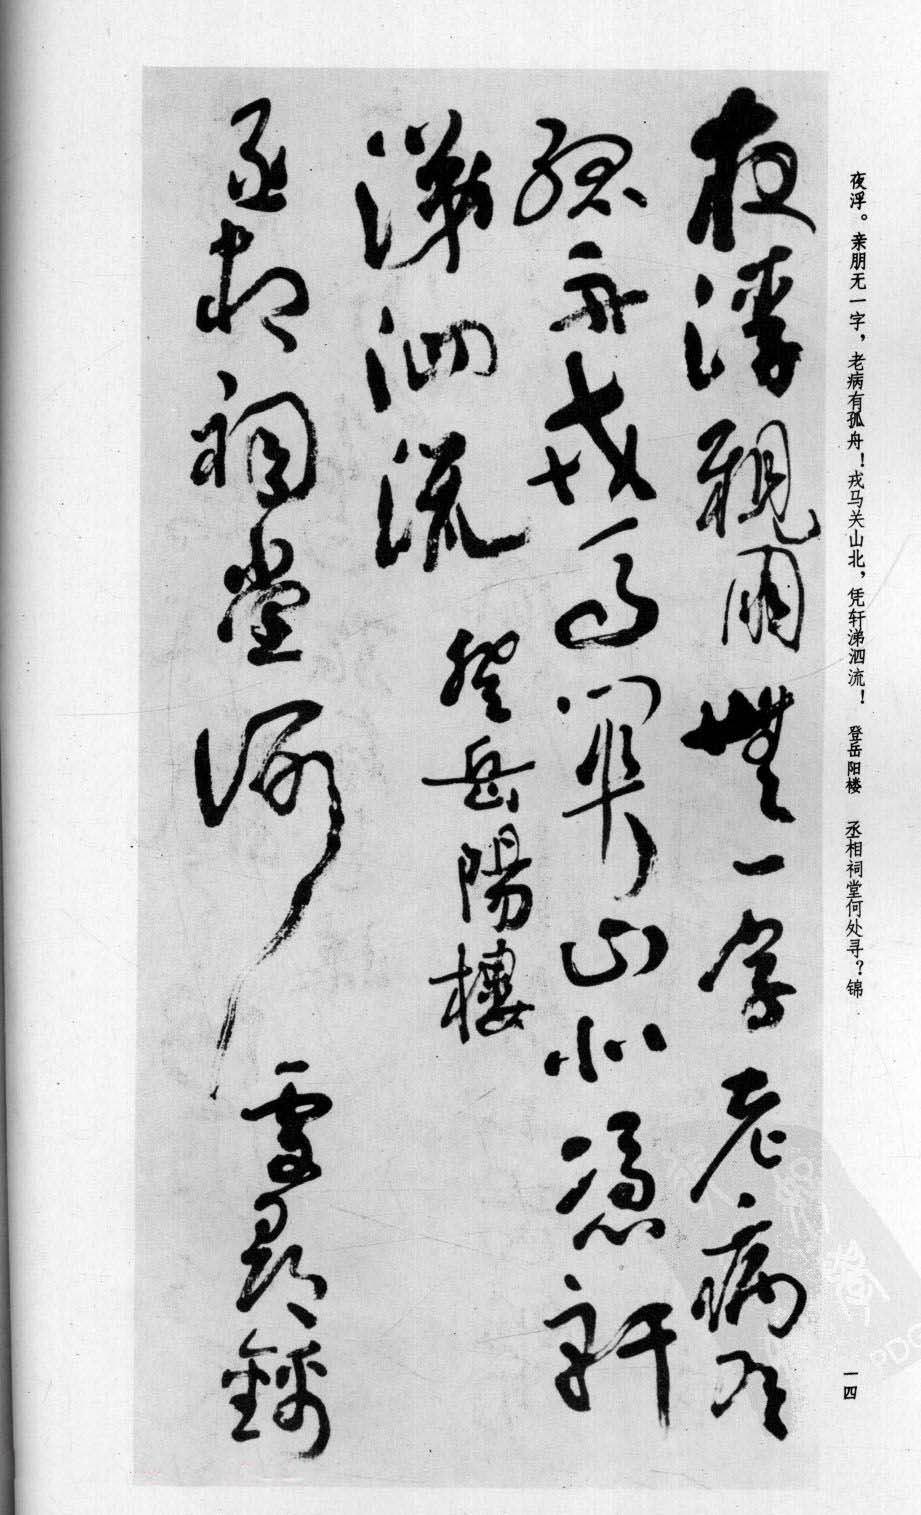 夜浮。亲朋无一字，老病有孤舟！戎马关山北，凭轩涕泗流！ 登岳阳楼 丞相祠堂何处寻？锦
夜浮親朋無一字老病有
孤舟戎馬關山北憑軒
涕泗流 登岳陽樓
丞相祠堂何處尋錦
一四